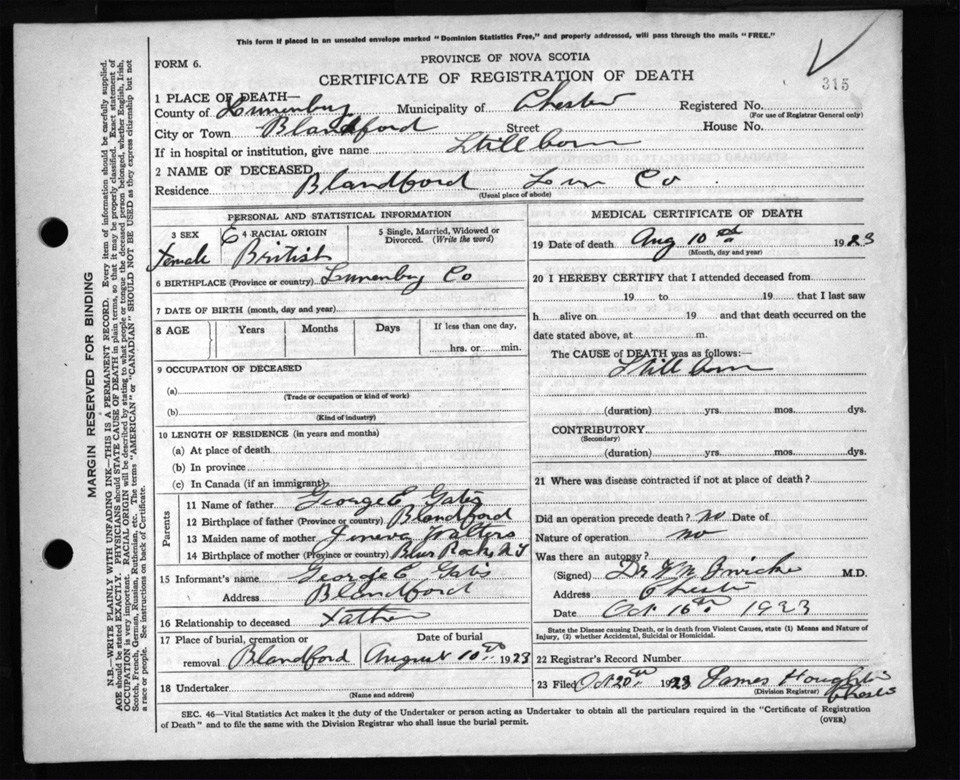 This form if placed in an unsealed envelope marked "Dominion Statistics Free," and properly addressed, will pass through the mails "FREE."
FORM 6.
PROVINCE OF NOVA SCOTIA
CERTIFICATE OF REGISTRATION OF DEATH
315
1 PLACE OF DEATH—
County of Lunenburg Municipality of Chester Registered No.
(For use of Registrar General only)
City or Town Blandford Street House No.
If in hospital or institution, give name Stillborn
2 NAME OF DECEASED
Residence Blandford Lun Co
(Usual place of abode)
PERSONAL AND STATISTICAL INFORMATION
3 SEX 4 RACIAL ORIGIN 5 Single, Married, Widowed or Divorced. (Write the word)
Female British
6 BIRTHPLACE (Province or country) Lunenburg Co
7 DATE OF BIRTH (month, day and year)
8 AGE Years Months Days If less than one day,
hrs. or min.
9 OCCUPATION OF DECEASED
(a)
(Trade or occupation or kind of work)
(b)
(Kind of industry)
10 LENGTH OF RESIDENCE (in years and months)
(a) At place of death
(b) In province
(c) In Canada (if an immigrant)
Parents
11 Name of father George E Gates
12 Birthplace of father (Province or country) Blandford
13 Maiden name of mother Walters
14 Birthplace of mother (Province or country) Blue Rocks N S
15 Informant's name George E Gates
Address Blandford
16 Relationship to deceased Father
17 Place of burial, cremation or removal Date of burial
Blandford August 10 1923
18 Undertaker
MEDICAL CERTIFICATE OF DEATH
19 Date of death Aug 10 1923
(Month, day and year)
20 I HEREBY CERTIFY that I attended deceased from
19 to 19 that I last saw
h alive on 19 and that death occurred on the
date stated above, at m.
The CAUSE of DEATH was as follows:—
Still born
(duration) yrs. mos. dys.
CONTRIBUTORY
(Secondary)
(duration) yrs. mos. dys.
21 Where was disease contracted if not at place of death?
Did an operation precede death? no Date of
Nature of operation no
Was there an autopsy?
(Signed) Dr M.D.
Address Chester
Date Oct 16th 1923
State the Disease causing Death, or in death from Violent Causes, state (1) Means and Nature of
Injury, (2) whether Accidental, Suicidal or Homicidal.
22 Registrar's Record Number
23 Filed Oct 20th 1923 James
(Division Registrar) Chester
SEC. 46—Vital Statistics Act makes it the duty of the Undertaker or person acting as Undertaker to obtain all the particulars required in the "Certificate of Registration
of Death" and to file the same with the Division Registrar who shall issue the burial permit.
(OVER)
MARGIN RESERVED FOR BINDING
N.B.—WRITE PLAINLY WITH UNFADING INK—THIS IS A PERMANENT RECORD. Every item of information should be carefully supplied.
AGE should be stated EXACTLY. PHYSICIANS should STATE CAUSE OF DEATH in plain terms, so that it may be properly classified. Exact statement of
OCCUPATION is very important. RACIAL ORIGIN will be described by stating to what people or tongue the deceased person belonged, whether English, Irish,
Scotch, French, German, Russian, Ruthenian, etc. The terms "AMERICAN" or "CANADIAN" SHOULD NOT BE USED as they express citizenship but not
a race or people. See instructions on back of Certificate.